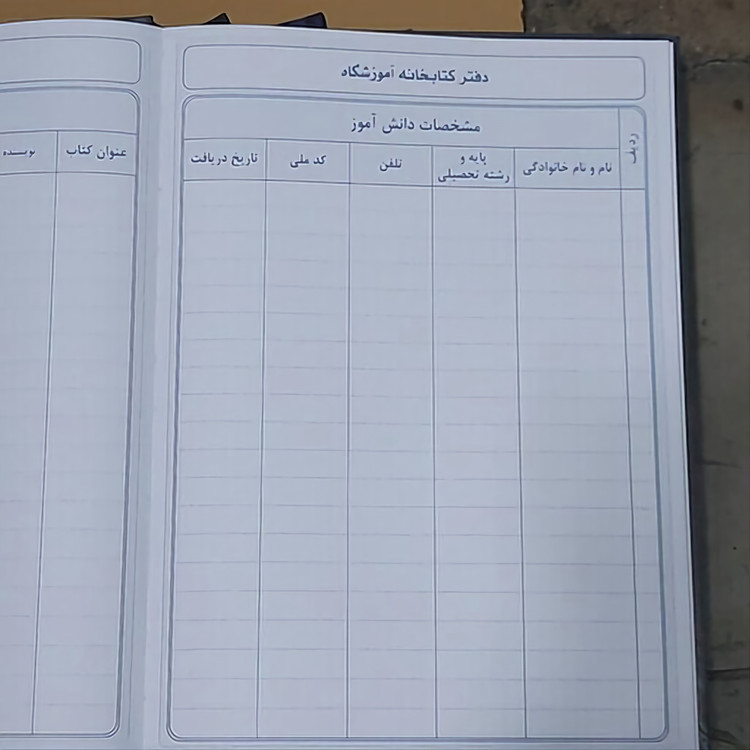 دفتر کتابخانه آموزشگاه
مشخصات دانش آموز
ردیف
نام و نام خانوادگی
پایه و
رشته تحصیلی
تلفن
کد ملی
تاریخ دریافت
عنوان کتاب
نویسنده